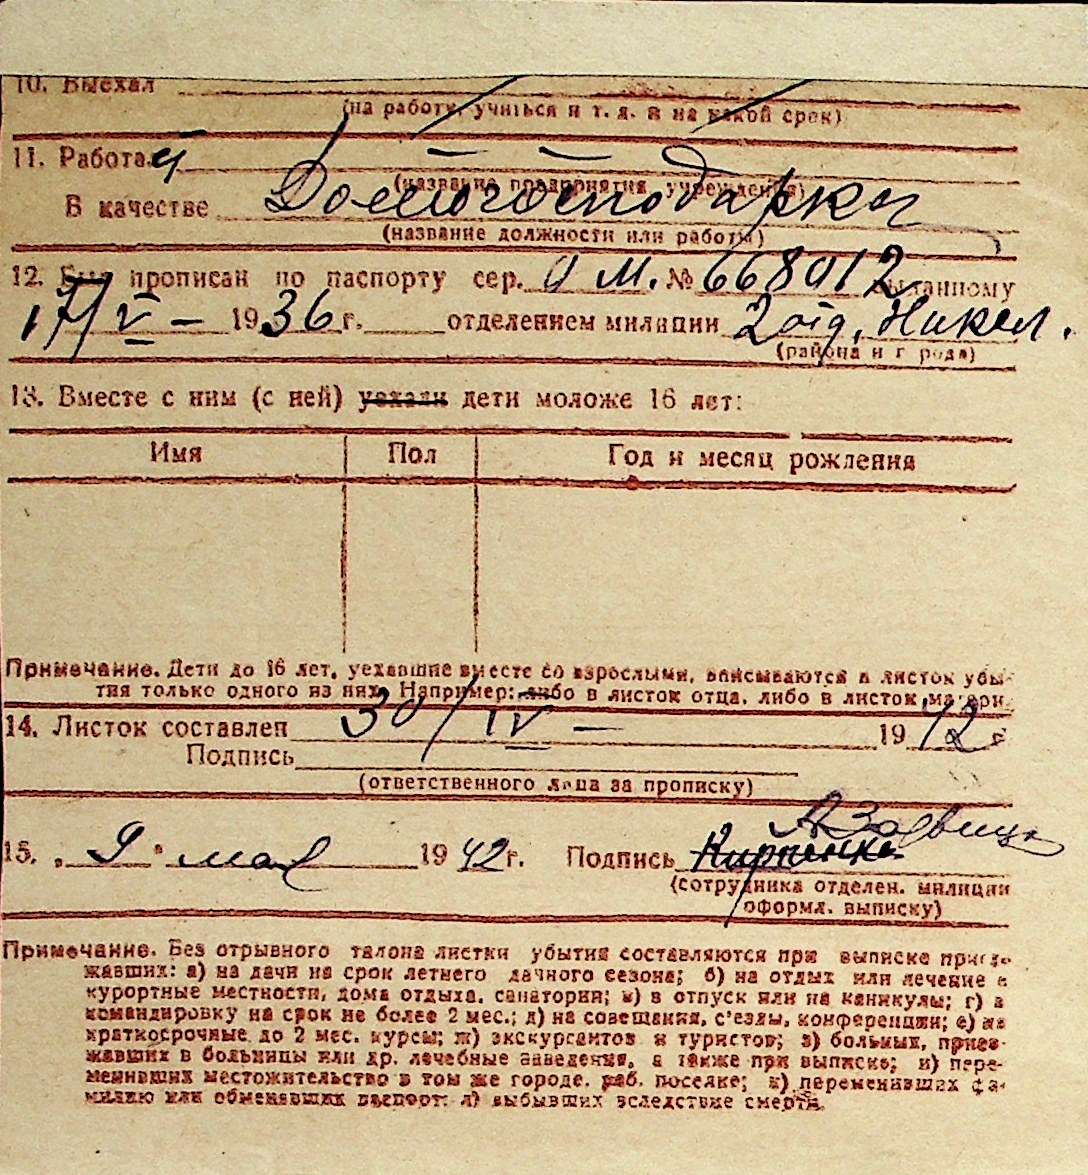 10. Выехал
(на работу, учиться и т. д. и на какой срок)
11. Работал
(название предприятия, учреждения)
В качестве Домогосподарка
(название должности или работы)
12. Был прописан по паспорту сер. ЯМ. № 668012 выданному
17/V – 1936 г. отделением милиции 2 отд. Никол.
(района и города)
13. Вместе с ним (с ней) уехали дети моложе 16 лет:
Имя Пол Год и месяц рождения
Примечание. Дети до 16 лет, уехавшие вместе со взрослыми, вписываются в листок убы-
тия только одного из них. Например: либо в листок отца, либо в листок матери.
14. Листок составлен 30/IV – 1942 г.
Подпись
(ответственного лица за прописку)
15. „9" мая 1942 г. Подпись
(сотрудника отделен. милиции
оформл. выписку)
Примечание. Без отрывного талона листки убытия составляются при выписке приез-
жавших: а) на дачи на срок летнего дачного сезона; б) на отдых или лечение в
курортные местности, дома отдыха, санатории; в) в отпуск или на каникулы; г) в
командировку на срок не более 2 мес.; д) на совещания, с'езды, конференции; е) на
краткосрочные до 2 мес. курсы; ж) экскурсантов и туристов; з) больных, приез-
жавших в больницы или др. лечебные заведения, а также при выписке; и) пере-
менивших местожительство в том же городе, раб. поселке; к) переменивших фа-
милию или обменявших паспорт; л) выбывших вследствие смерти.